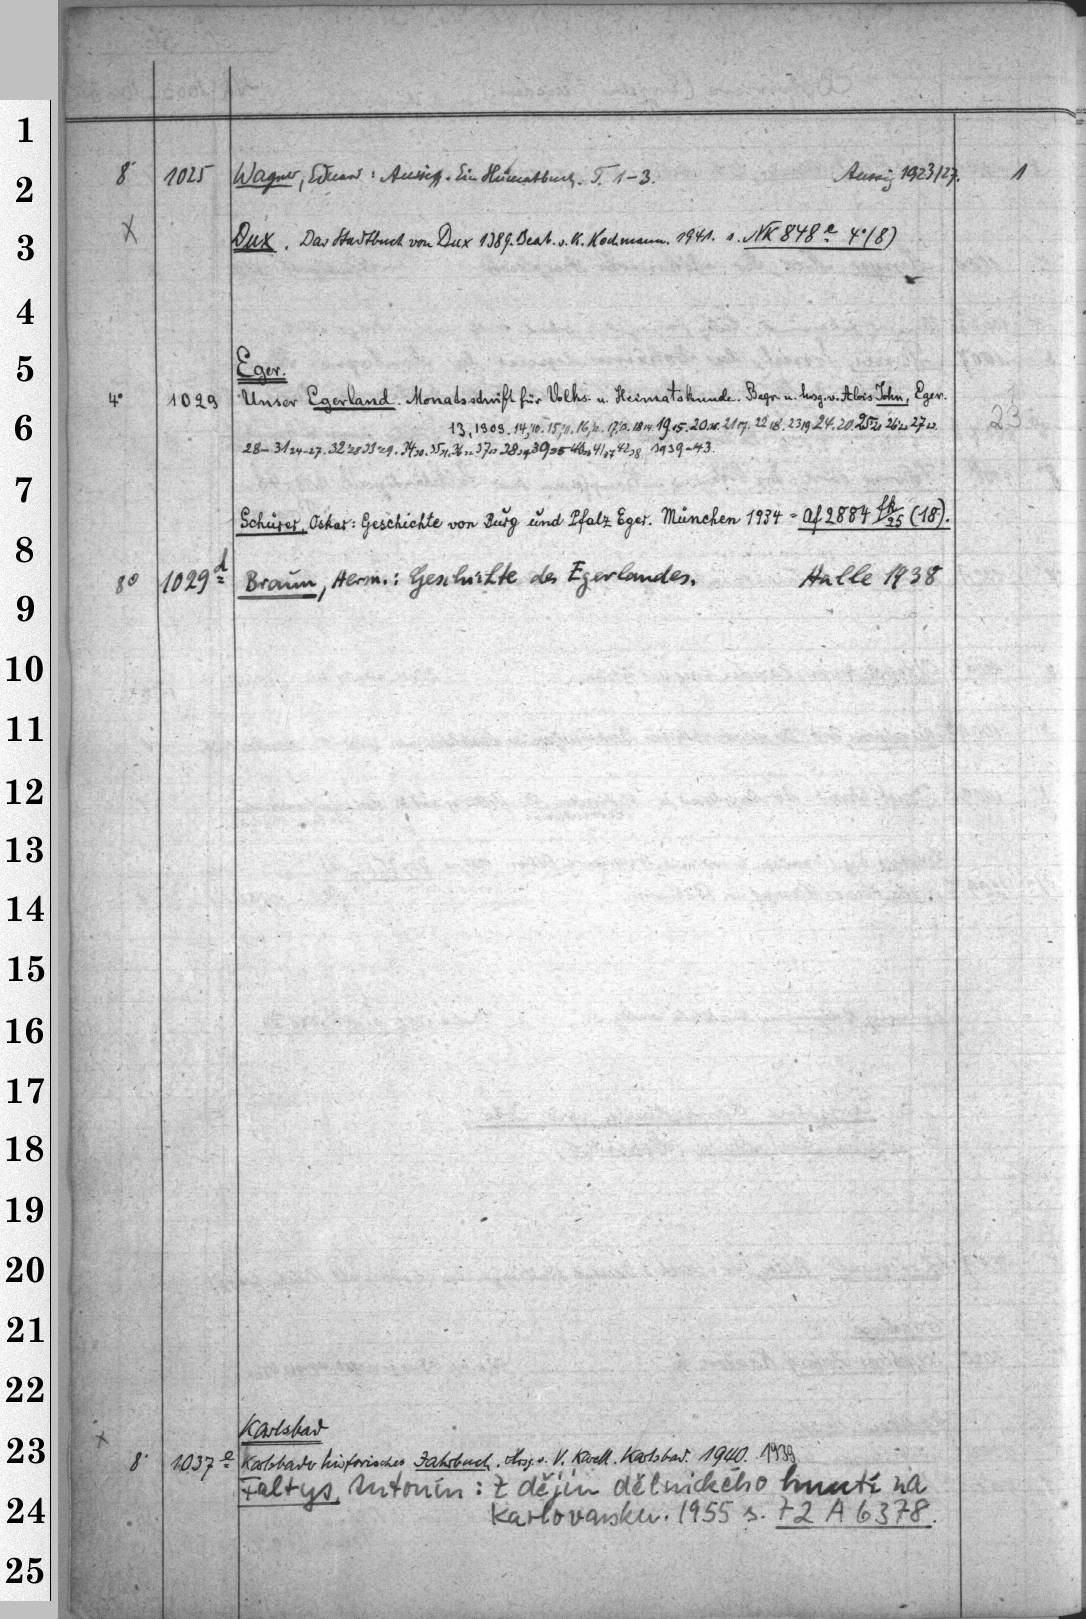 8° 1025 Wagner, Eduard: Aussig. Ein Heimatbuch. T. 1-3. Aussig 1923/27. 1
X Dux. Das Stadtbuch von Dux 1389. Bearb. v. K. Kochmann. 1941. s. NK 848 e 4° (8)
Eger.
4° 1029 Unser Egerland. Monatsschrift für Volks- u. Heimatskunde. Begr. u. hrsg. v. Alois John, Eger. 23
13, 1909. 14, 10. 15, 11. 16, 12. 17, 13. 18 14. 19 15. 20 16. 21 17. 22 18. 23 19. 24. 20. 25 21 26 22 27 23.
28-31 24-27. 32 28 33 29. 34 30. 35 31. 36 32 37 33 38 34 39 35 40 36 41 37 42 38 1939-43.
Schürer, Oskar: Geschichte von Burg und Pfalz Eger. München 1934 = Af 2884 fk/25 (18).
8° 1029 d Braun, Herm.: Geschichte des Egerlandes. Halle 1938
Karlsbad
x 8° 1037 e Karlsbader historisches Jahrbuch. Hrsg. v. V. Karell. Karlsbad. 1940. 1939
Faltys, Antonín: Z dějin dělnického hnutí na
Karlovarsku. 1955 s. 72 A 6378.
1
2
3
4
5
6
7
8
9
10
11
12
13
14
15
16
17
18
19
20
21
22
23
24
25